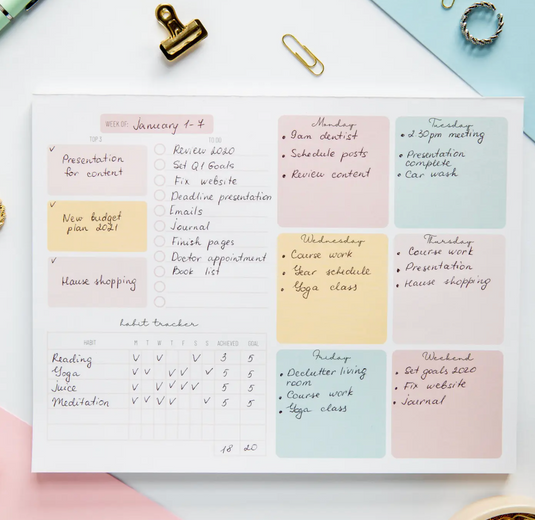 WEEK OF: January 1-7
TOP 3
Presentation
for content
New budget
plan 2021
Hause shopping
TO DO
Review 2020
Set Q1 Goals
Fix website
Deadline presentation
Emails
Journal
Finish pages
Doctor appointment
Book list
habit tracker
HABIT M T W T F S S ACHIEVED GOAL
Reading 3 5
Yoga 5 5
Juice 5 5
Meditation 5 5
18 20
Monday
• 9am dentist
• Schedule posts
• Review content
Tuesday
• 2:30pm meeting
• Presentation
complete
• Car wash
Wednesday
• Course work
• Year schedule
• Yoga class
Thursday
• Course work
• Presentation
• Hause shopping
Friday
• Declutter living
room
• Course work
• Yoga class
Weekend
• Set goals 2020
• Fix website
• Journal